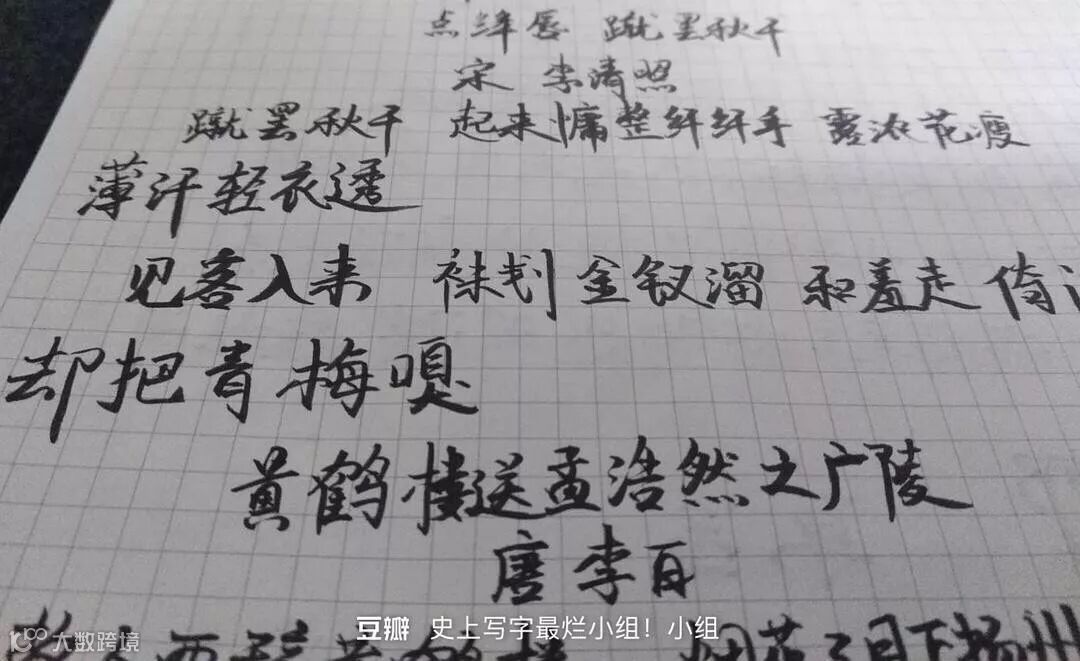 点绛唇 蹴罢秋千
宋 李清照
蹴罢秋千 起来慵整纤纤手 露浓花瘦
薄汗轻衣透
见客入来 袜刬金钗溜 和羞走 倚
却把青梅嗅
黄鹤楼送孟浩然之广陵
唐 李白
西 烟花三月下扬州
豆瓣 史上写字最烂小组！小组
大数跨境